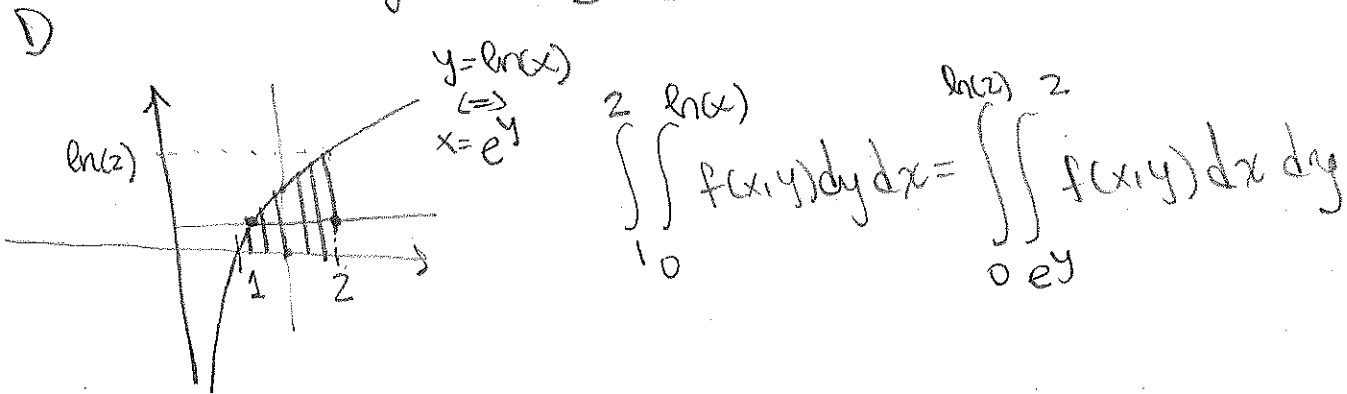 D
y=ln(x)
<=>
x=e^y
ln(2)
1 2
∫_1^2 ∫_0^ln(x) f(x,y)dydx = ∫_0^ln(2) ∫_e^y^2 f(x,y)dx dy